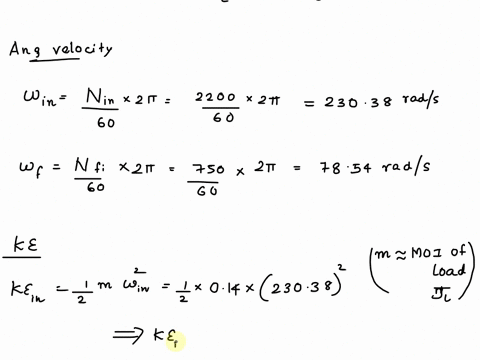 Ang velocity
ω_in = N_in/60 × 2π = 2200/60 × 2π = 230.38 rad/s
ω_f = N_fi/60 × 2π = 750/60 × 2π = 78.54 rad/s
KE
KE_in = 1/2 m ω_in² = 1/2 × 0.14 × (230.38)² (m ≈ MOI of
load
I_L
⟹ KE